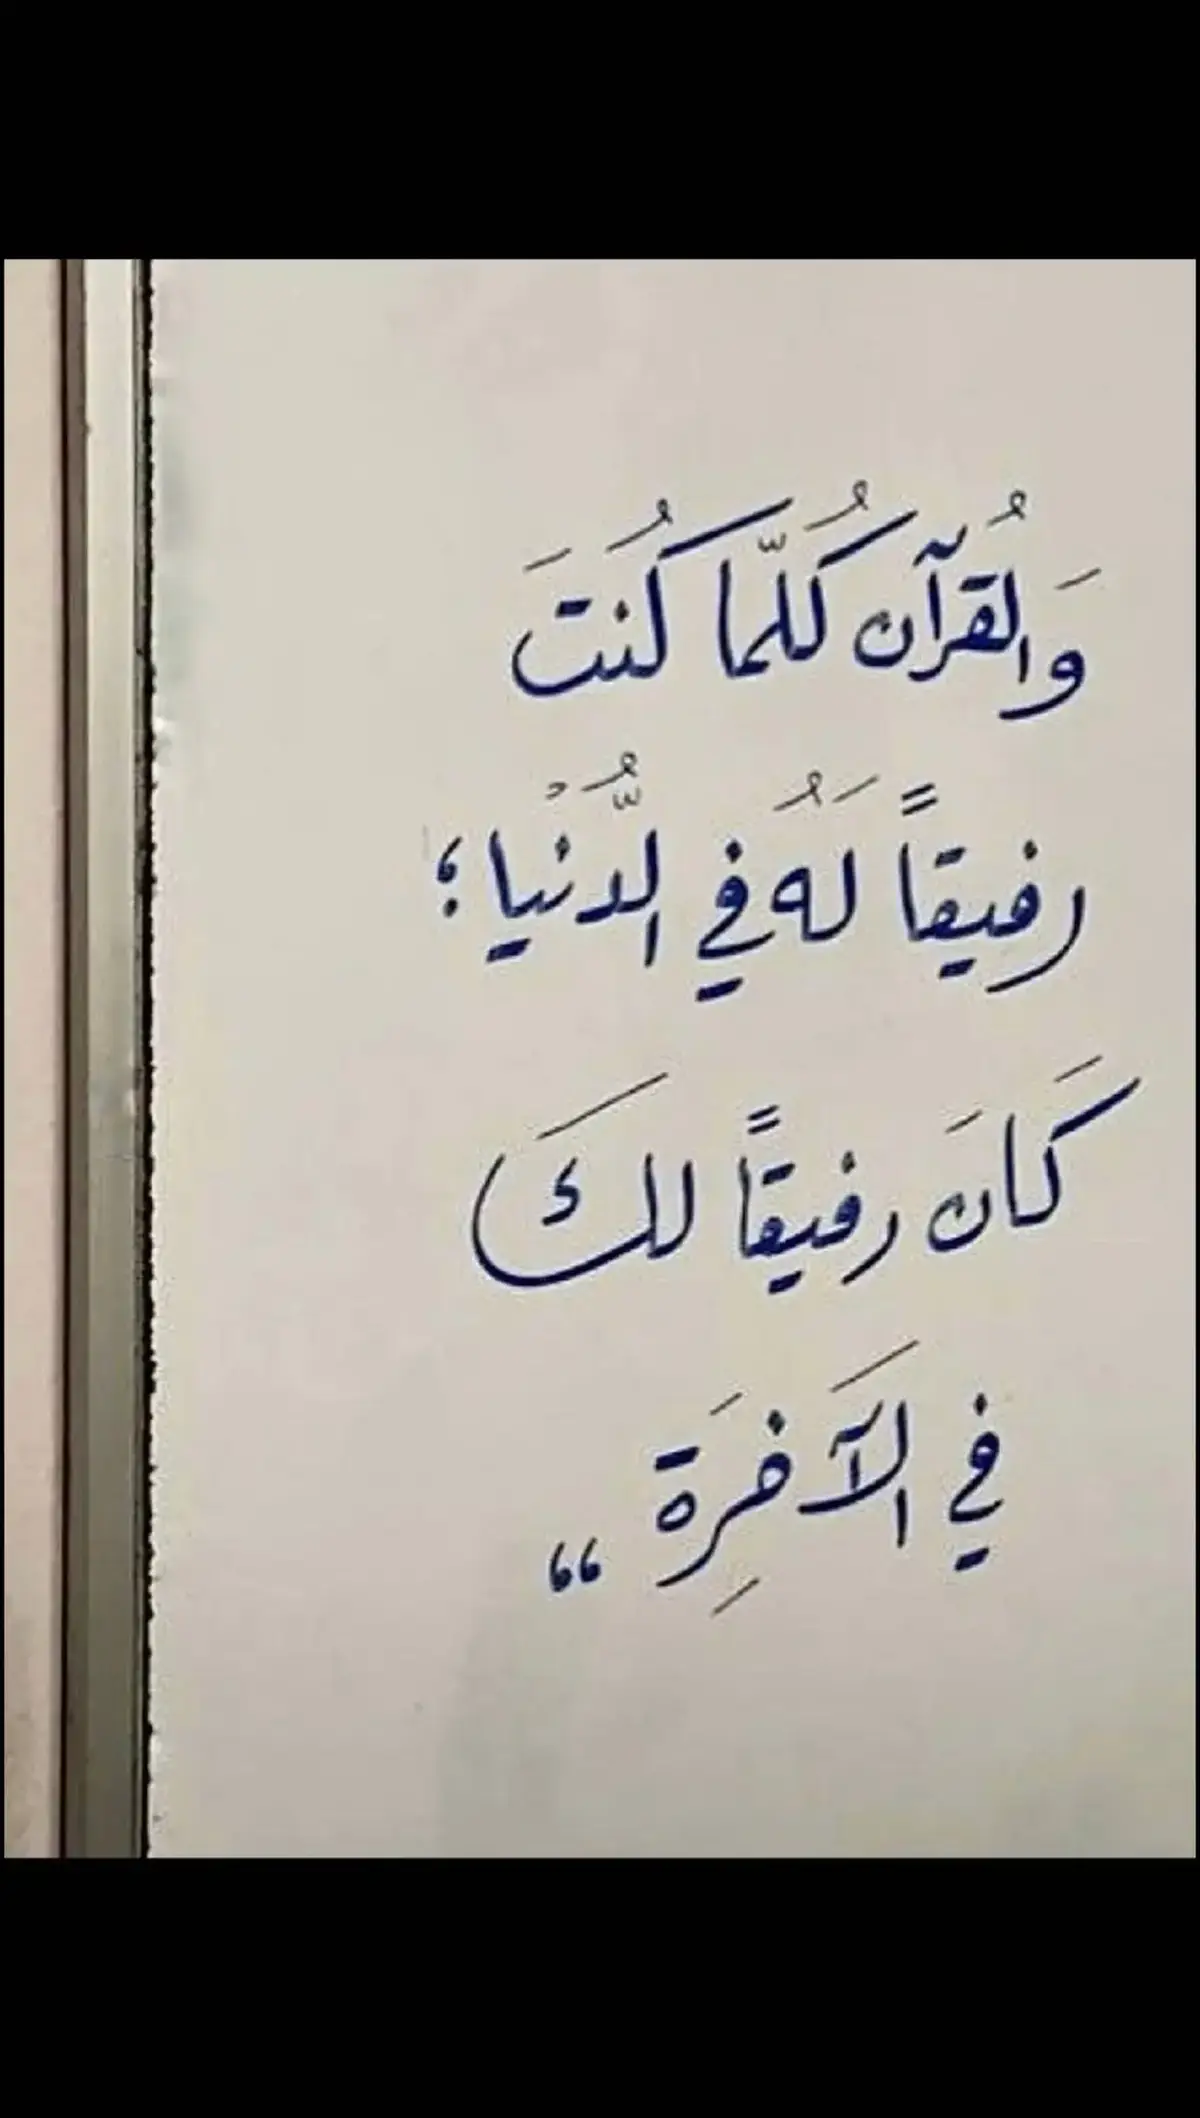 وَالقُرآن كُلّما كُنتَ
رفيقاً لَهُ في الدُّنْيا ؛
كَانَ رفيقاً للكَ
في الَآخِرَة ,,